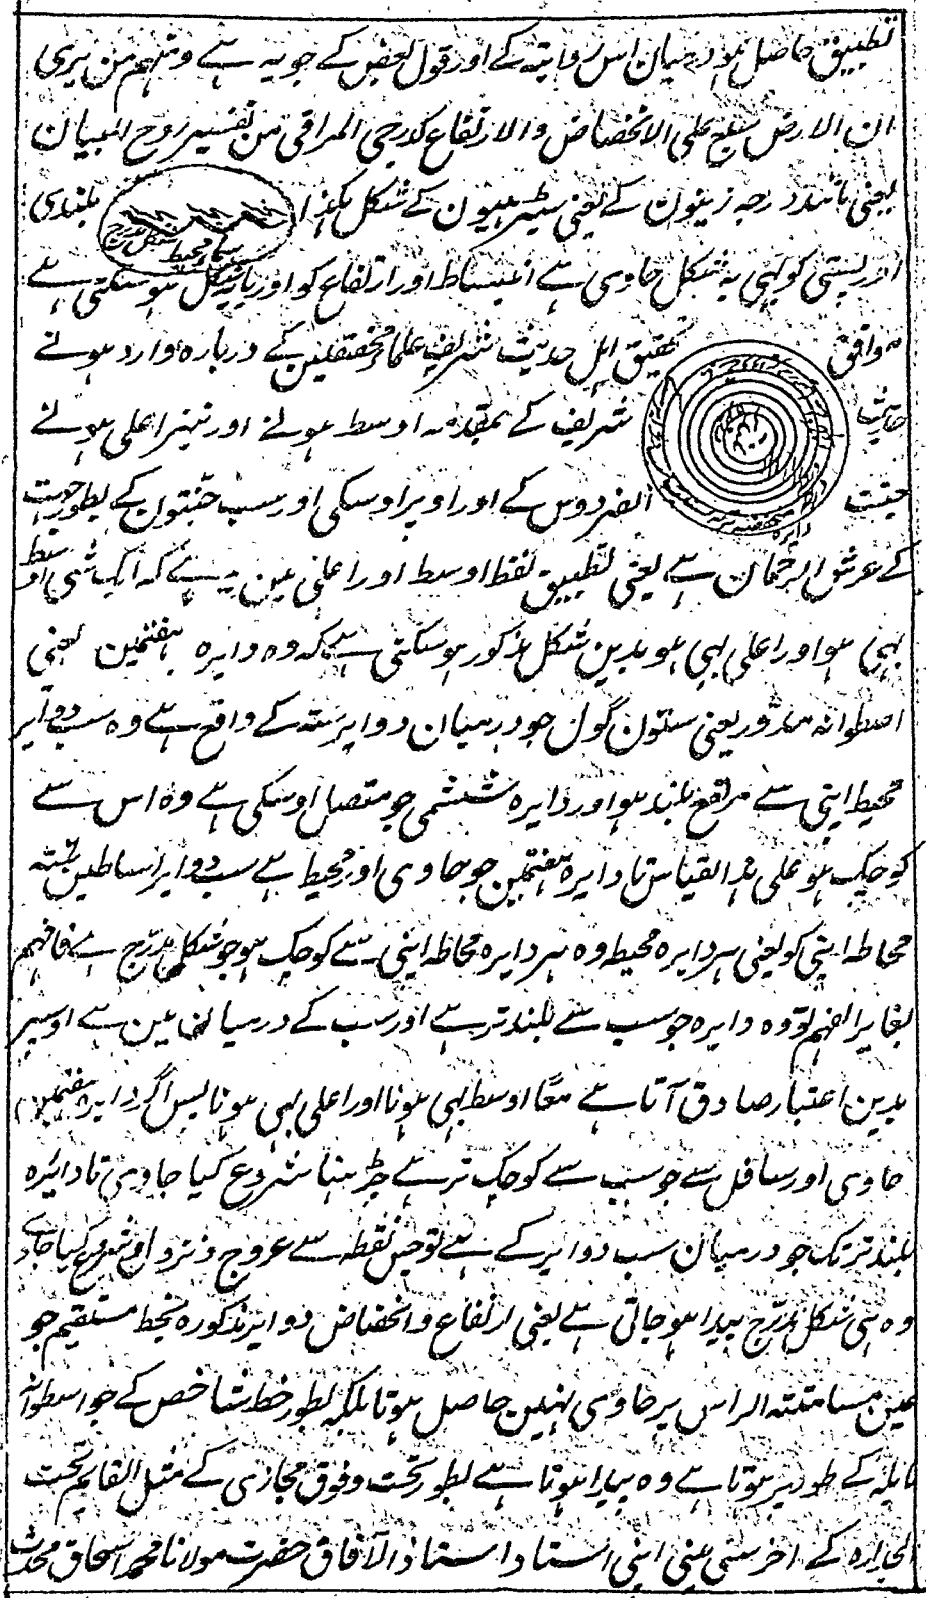 تطبیق حاصل ہو درمیان اس روایتہ کے اور قول بعض کے جو یہ ہے ومنہم من یری
ان الارض سبع علی الانخفاض والارتفاع کدرجی المراقی من تفسیر روح البیان
یعنی مانند درجہ زینون کے یعنی سیڑہیون کے شکل ہکذا بلندی
اور پستی کو بہی یہ شکل حاوی ہے انبساط اور ارتفاع کو اور یا یہ شکل ہو سکتی ہے
موافق تحقیق اہل حدیث شریف علماء محققین کے دربارہ وارد ہونے
حدیث شریف کے بمقدمہ اوسط ہونے اور نیز اعلی ہونے
جنت الفردوس کے اور اوپر اوسکی اور سب جنتون کے بطور چہت
کے عرش الرحمان ہے یعنی تطبیق لفظ اوسط اور اعلی مین یہ ہے کہ ایک شی اوسط
بہی ہو اور اعلی بہی ہو بدین شکل مذکور ہو سکتی ہے کہ وہ دایرہ ہفتمین یعنی
اصطوانہ مدور یعنی ستون گول جو درمیان دوایر ستہ کے واقع ہے وہ سب دوایر
محیط اپنی سے مرتفع بلند ہو اور دایرہ ششمی جو متصل اوسکی ہے وہ اس سے
کوچک ہو علی ہذا القیاس تا دایرہ ہفتمین جو حاوی اور محیط ہے سب دوایر اساطین ستہ
محاطہ اپنی کو یعنی ہر دایرہ محیط وہ ہر دایرہ محاطہ اپنی سے کوچک ہو جو شکل مدرج ہے فافہم
بغایر الفہم تو وہ دایرہ جو سب سے بلند تر ہے اور سب کے درمیان مین ہے اوسپر
بدین اعتبار صادق آتا ہے معًا اوسط بہی ہونا اور اعلی بہی ہونا پس اگر دایرہ ہفتمین
حاوی اور سافل سے جو سب سے کوچک تر ہے چڑہنا شروع کیا جاوی تا دائرہ
بلند تر تک جو درمیان سب دوایر کے ہے تو جس نقطہ سے عروج و نزول شروع کیا جاوے
وہ ہی شکل مدرج پیدا ہو جاتی ہے یعنی ارتفاع وانخفاض دوایر مذکورہ بخط مستقیم جو
عین مسامتتہ الراس پر حاوی نہین حاصل ہوتا بلکہ بطور خط شاخص کے جو اسطوانہ
مایلہ کے طور پر ہوتا ہے وہ پیدا ہوتا ہے بطور تحت وفوق مجازی کے مثل القایم تحت
الجدارہ کے اخر سنی مینی اپنی استاد استاذ الآفاق حضرت مولانا محمد اسحاق محدث